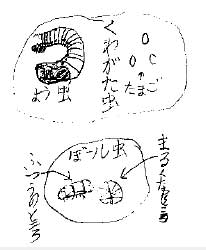 くわがた虫
たまご
よう虫
ぼール虫
まるくなるところ
ふつうのところ